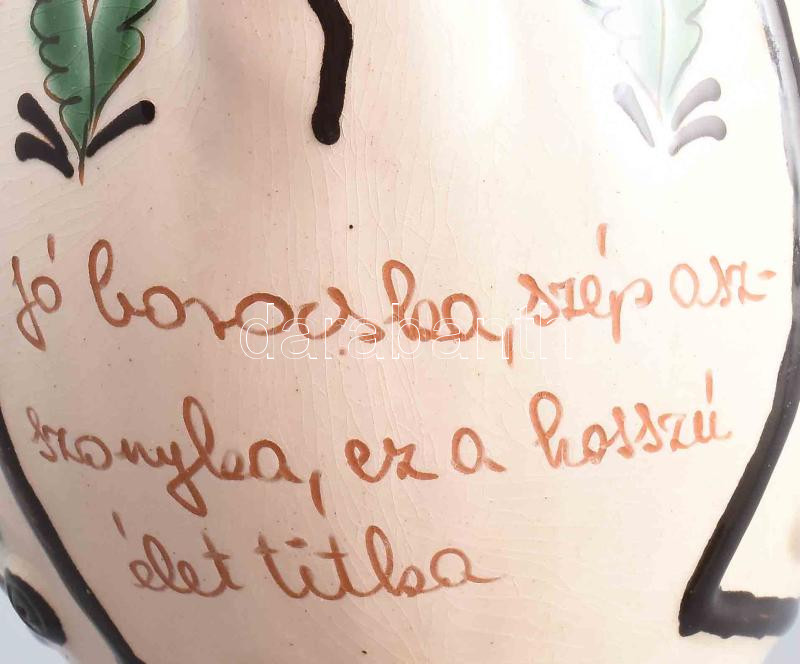 Jó borocska, szép asz-
szonyka, ez a hosszú
élet titka
darabanth